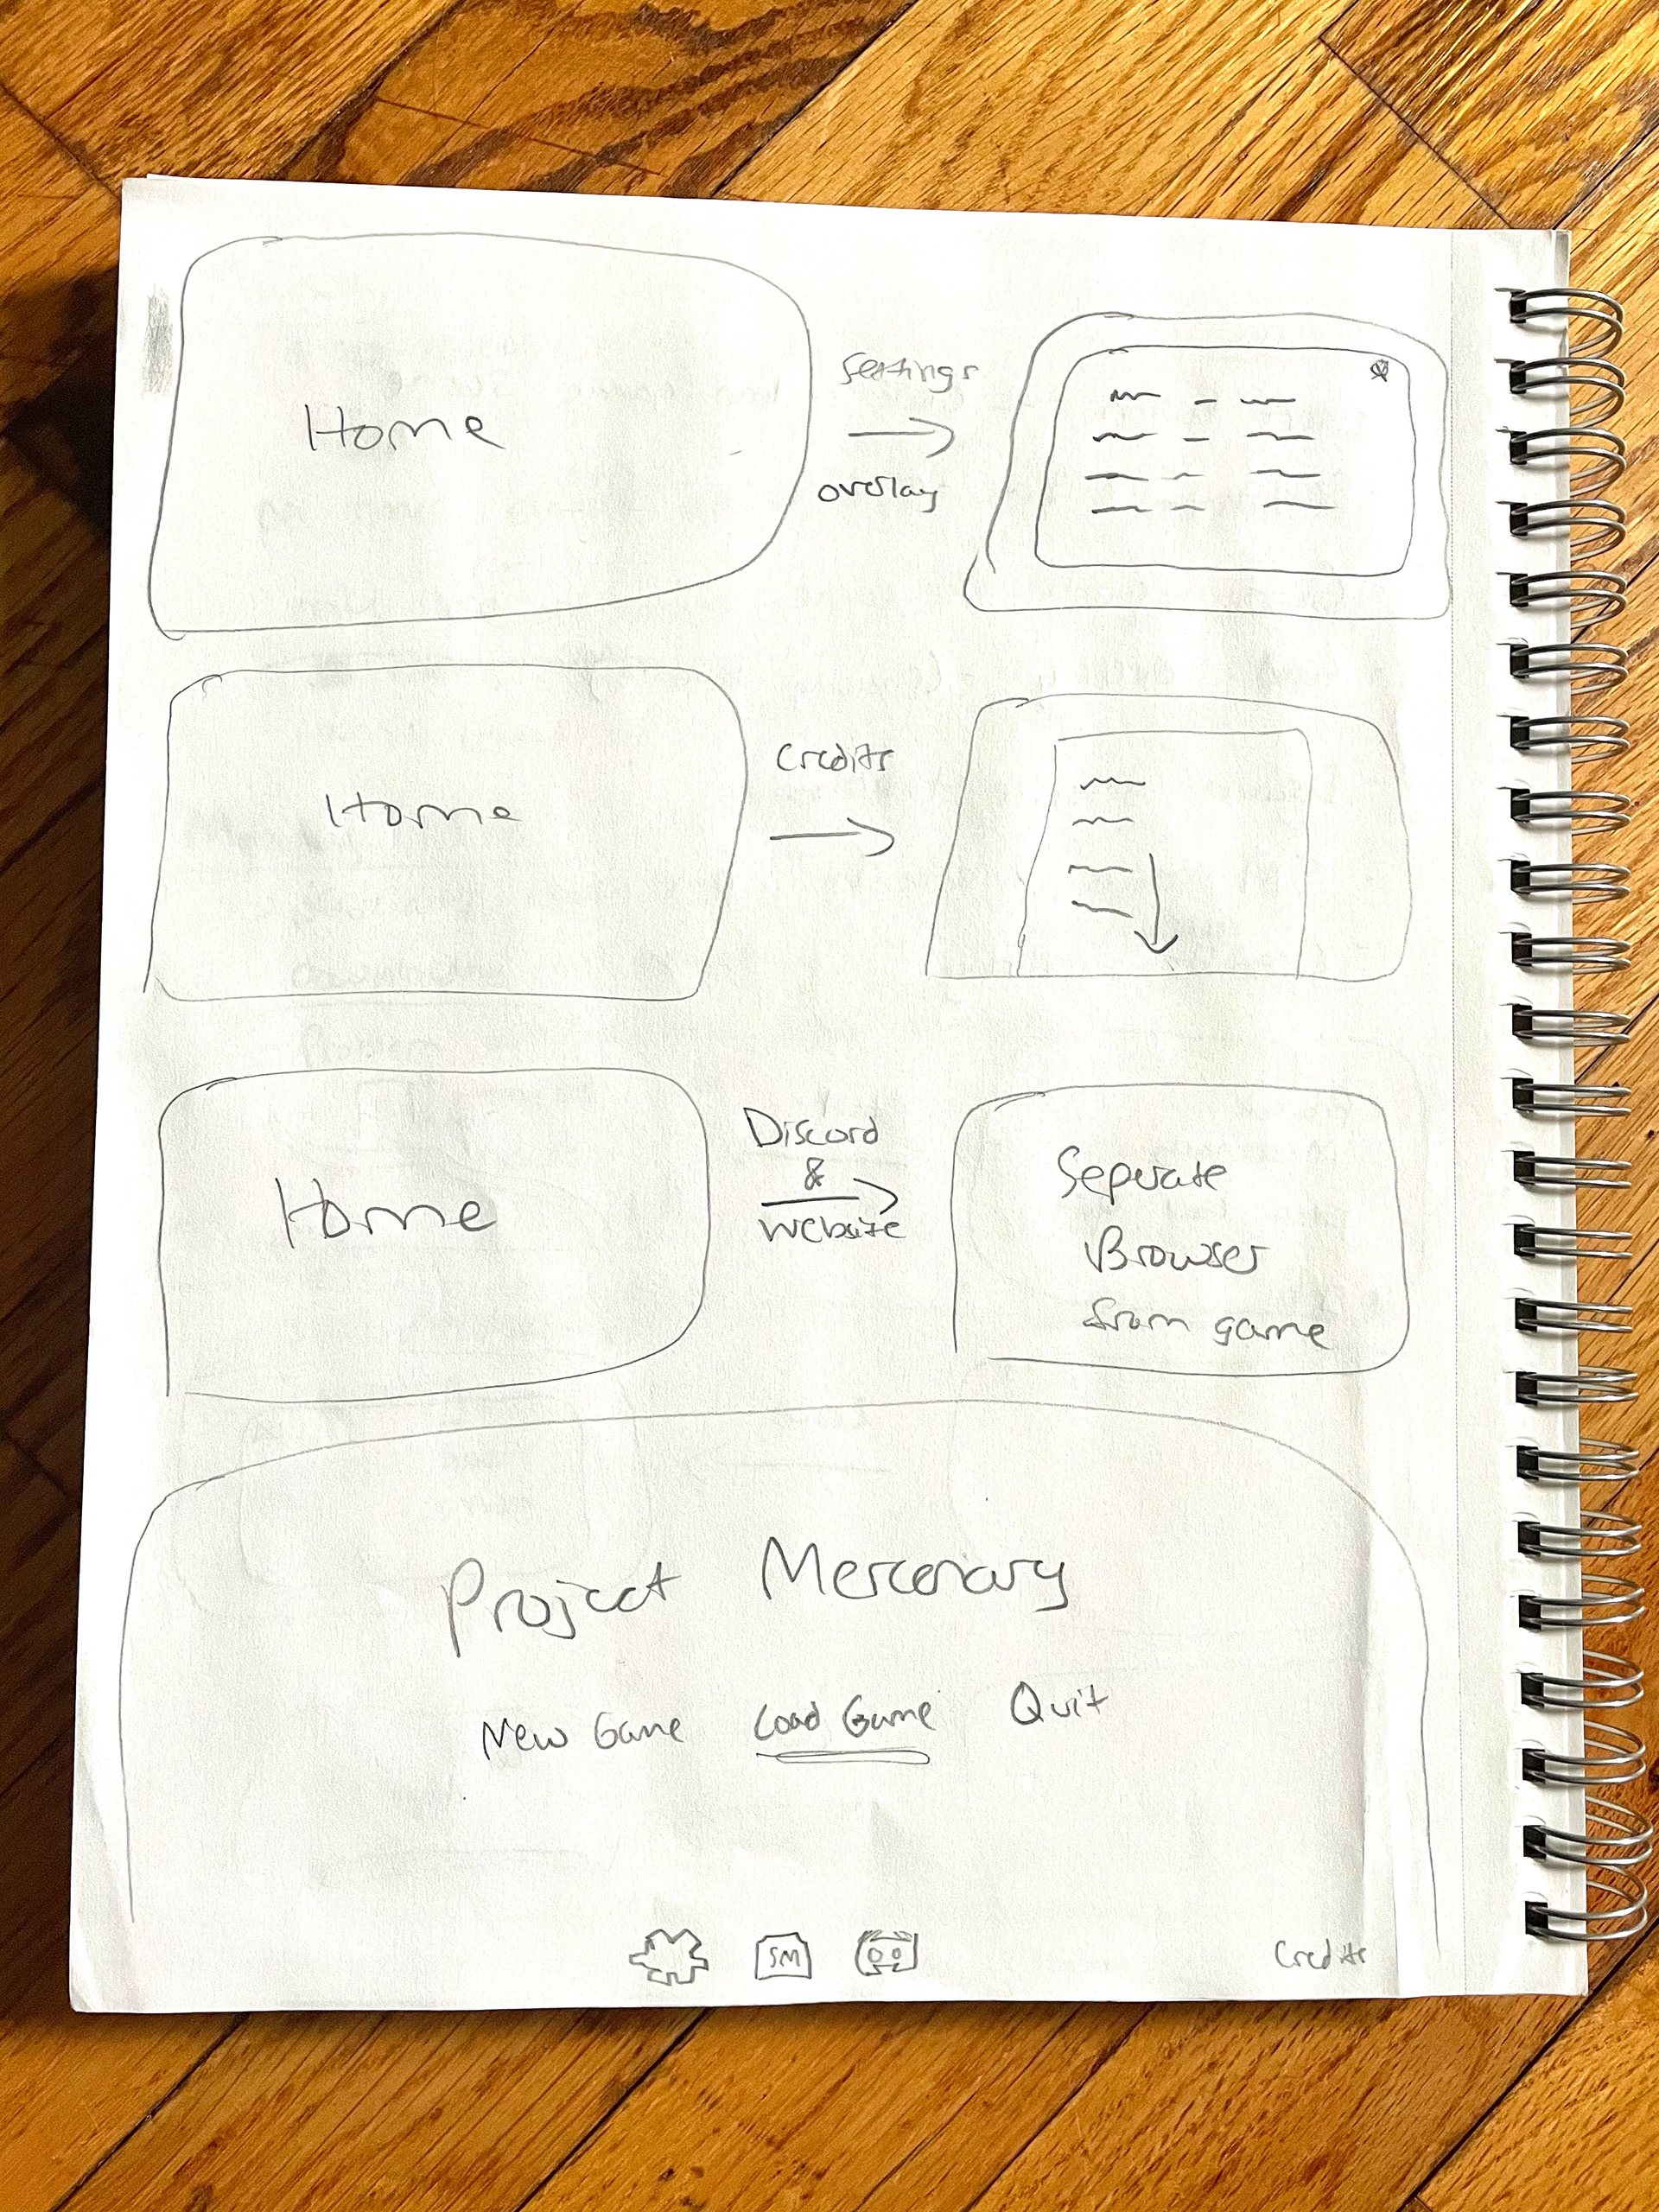 Home
Settings
overlay
Home
Credits
Home
Discord
&
Website
Seperate
Browser
from game
Project Mercenary
New Game Load Game Quit
SM
Credits